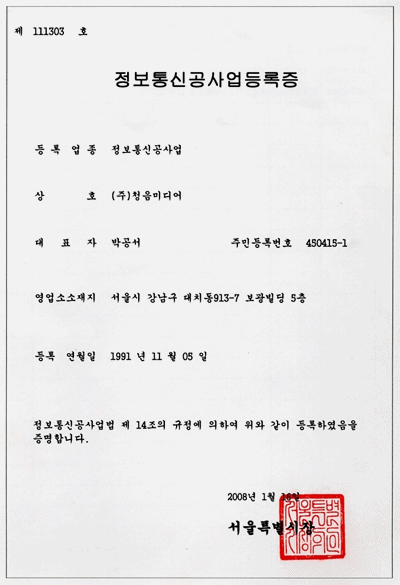 제 111303 호
정보통신공사업등록증
등 록 업 종 정보통신공사업
상 호 (주)청음미디어
대 표 자 박공서 주민등록번호 450415-1
영업소소재지 서울시 강남구 대치동913-7 보광빌딩 5층
등록 연월일 1991 년 11 월 05 일
정보통신공사업법 제 14조의 규정에 의하여 위와 같이 등록하였음을
증명합니다.
2008년 1월 16일
서울특별시장